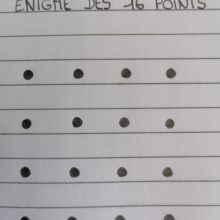 ENIGME DES 16 POINTS